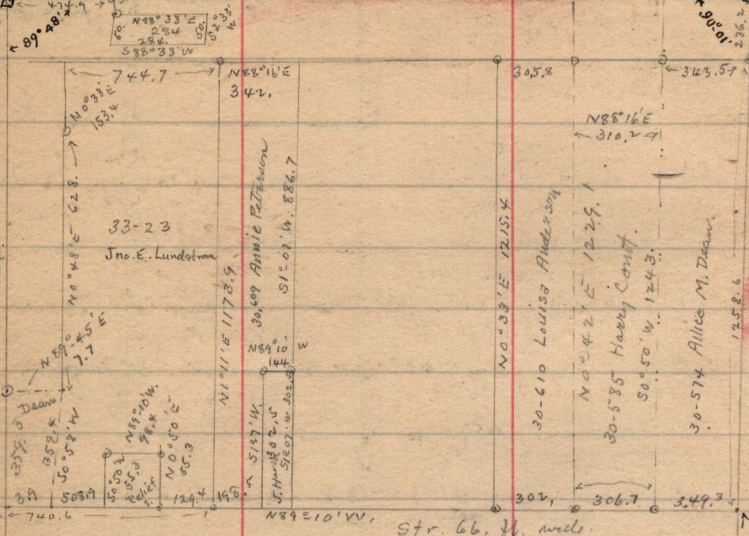 474.9
89°48'
N88°33'E
284
60.
50.
284.
S88°33'W
S2°33'W
90°01'
236.2
744.7
N88°16'E
342.
305.8
343.5
N0°33'E
153.4
N88°16'E
310.2
N0°48'E 628.
33-23
Jno. E. Lundstrom
N1°11'E 1173.9
30,609 Annie Peterson
S1°07'W. 886.7
N0°33'E 1215.4
30-610 Louisa Anderson
N0°42'E 1229.1
30-585 Harry Const.
S0°50'W. 1243.
30-574 Allice M. Dean.
1258.6
N89°45'E
7.7
359.3 Dean
358.4
S0°58'W
N89°10'W.
98.4
S0°50'W
55.3
Relief
N0°50'E
55.3
N89°10'W
144
S1°27'W.
302.5
S1°07'W 302.5
3.9
508.9
129.4
198.5
302.
306.7
349.3
740.6
N89°10'W.
Str. 66. ft. wide.